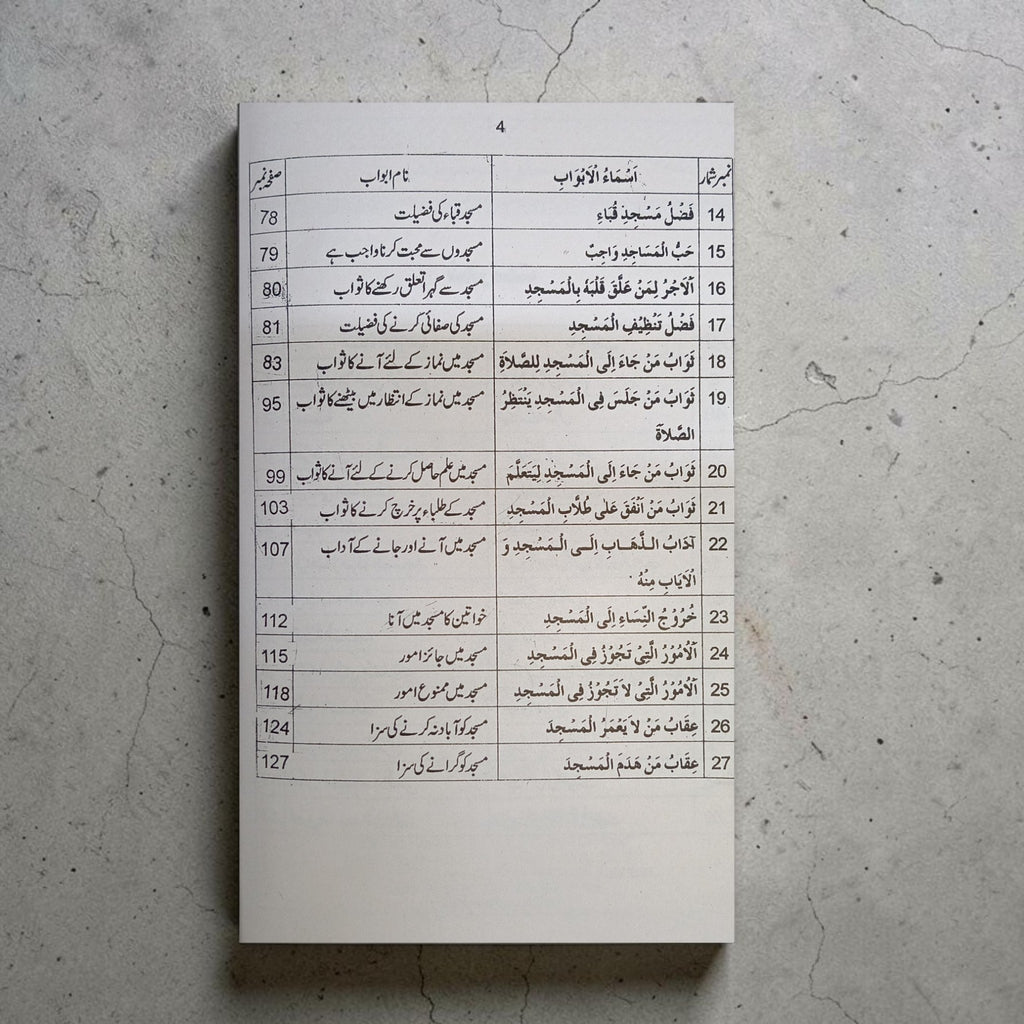 4
نمبر شمار اَسْمَاءُ الْاَبْوَابِ نام ابواب صفحہ نمبر
14 فَضْلُ مَسْجِدِ قُبَاءِ مسجد قباء کی فضیلت 78
15 حَبُّ الْمَسَاجِدِ وَاجِبٌ مسجدوں سے محبت کرنا واجب ہے 79
16 اَلْاَجْرُ لِمَنْ عَلَّقَ قَلْبَهٗ بِالْمَسْجِدِ مسجد سے گہرا تعلق رکھنے کا ثواب 80
17 فَضْلُ تَنْظِيْفِ الْمَسْجِدِ مسجد کی صفائی کرنے کی فضیلت 81
18 ثَوَابُ مَنْ جَاءَ اِلَى الْمَسْجِدِ لِلصَّلَاةِ مسجد میں نماز کے لئے آنے کا ثواب 83
19 ثَوَابُ مَنْ جَلَسَ فِى الْمَسْجِدِ يَنْتَظِرُ مسجد میں نماز کے انتظار میں بیٹھنے کا ثواب 95
الصَّلَاةَ
20 ثَوَابُ مَنْ جَاءَ اِلَى الْمَسْجِدِ لِيَتَعَلَّمَ مسجد میں علم حاصل کرنے کے لئے آنے کا ثواب 99
21 ثَوَابُ مَنْ اَنْفَقَ عَلٰى طُلَّابِ الْمَسْجِدِ مسجد کے طلباء پر خرچ کرنے کا ثواب 103
22 آدَابُ الذَّهَابِ اِلَى الْمَسْجِدِ وَ مسجد میں آنے اور جانے کے آداب 107
الْاِيَابِ مِنْهُ
23 خُرُوْجُ النِّسَاءِ اِلَى الْمَسْجِدِ خواتین کا مسجد میں آنا 112
24 اَلْاُمُوْرُ الَّتِىْ تَجُوْزُ فِى الْمَسْجِدِ مسجد میں جائز امور 115
25 اَلْاُمُوْرُ الَّتِىْ لَا تَجُوْزُ فِى الْمَسْجِدِ مسجد میں ممنوع امور 118
26 عِقَابُ مَنْ لَا يَعْمَرُ الْمَسْجِدَ مسجد کو آباد نہ کرنے کی سزا 124
27 عِقَابُ مَنْ هَدَمَ الْمَسْجِدَ مسجد کو گرانے کی سزا 127